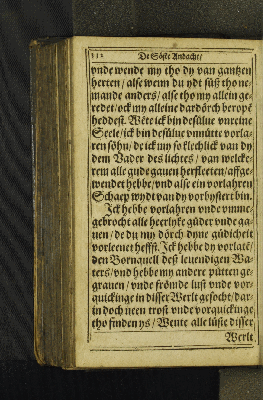 De Söste Andacht/
vnde wende my tho dy van gantzen
herten/ alse wenn du ydt süß tho ne-
mande anders/ alse tho my allein ge-
redet/ ock my alleine dardörch beropē
heddest. Wēte ick bin desülue vnreine
Seele/ ick bin desülue vnmütte vorla-
ren söhn/ de ick my so klechlick van dy
dem Vader des lichtes/ van welcke-
rem alle gude gauen herfleeten/ affge-
wendet hebbe/ vnd alse ein vorlahren
Schaep wydt van dy vorbystert bin.
Ick hebbe vorlahren vnde vmme-
gebrocht alle heerlyke güder vnde ga-
uen/ de du my dörch dyne güdicheit
vorleenet heffst. Ick hebbe dy vorlatē/
den Bornquell deß leuendigen Wa-
ters/ vnd hebbe my andere pütten ge-
grauen/ vnde frömde lust vnde vor-
quickinge in disser Werlt gesocht/ dar-
in doch neen trost vnde vorquickinge
tho finden ys/ Wente alle lüste disser
Werlt